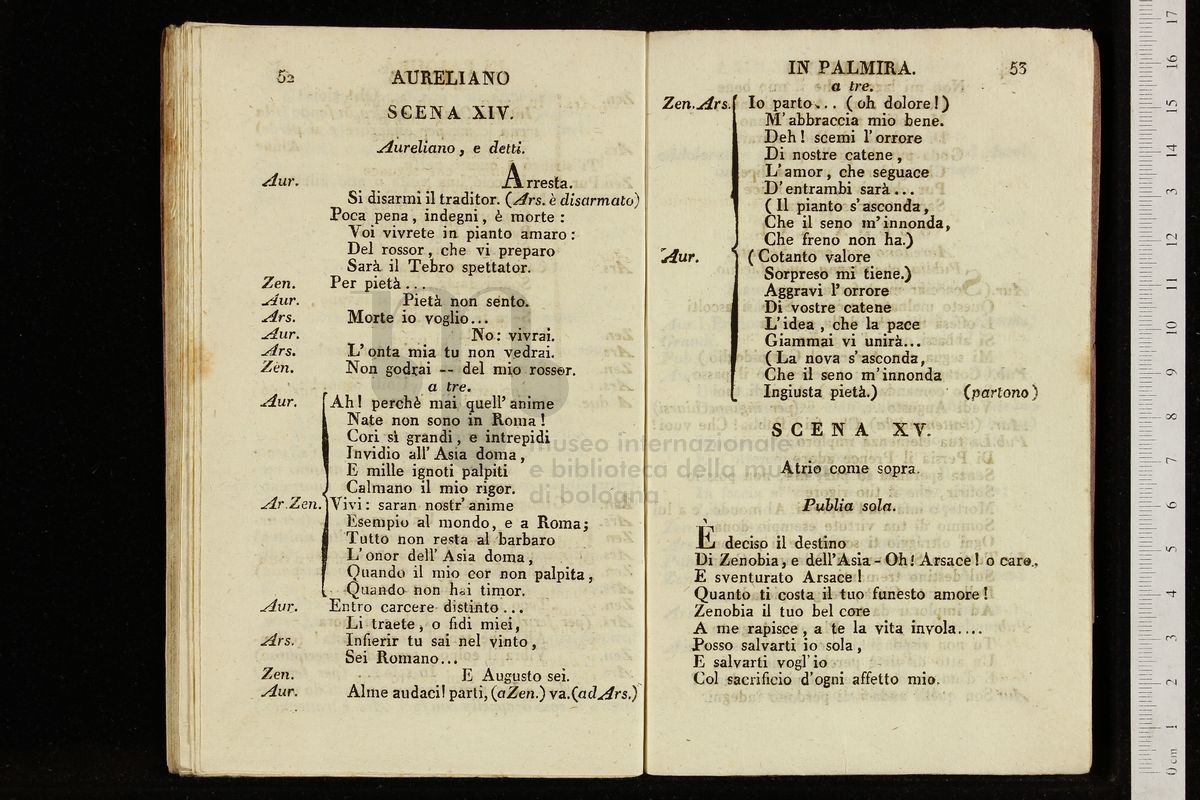 52
AURELIANO
SCENA XIV.
Aureliano, e detti.
Aur. Arresta.
Si disarmi il traditor. (Ars. è disarmato)
Poca pena, indegni, è morte:
Voi vivrete in pianto amaro:
Del rossor, che vi preparo
Sarà il Tebro spettator.
Zen. Per pietà...
Aur. Pietà non sento.
Ars. Morte io voglio...
Aur. No: vivrai.
Ars. L'onta mia tu non vedrai.
Zen. Non godrai -- del mio rossor.
a tre.
Aur. Ah! perchè mai quell'anime
Nate non sono in Roma!
Cori sì grandi, e intrepidi
Invidio all'Asia doma,
E mille ignoti palpiti
Calmano il mio rigor.
Ar. Zen. Vivi: saran nostr'anime
Esempio al mondo, e a Roma;
Tutto non resta al barbaro
L'onor dell'Asia doma,
Quando il mio cor non palpita,
Quando non hai timor.
Aur. Entro carcere distinto...
Li traete, o fidi miei,
Ars. Infierir tu sai nel vinto,
Sei Romano...
Zen. E Augusto sei.
Aur. Alme audaci! parti, (a Zen.) va. (ad Ars.)
IN PALMIRA.
53
a tre.
Zen. Ars. Io parto... (oh dolore!)
M'abbraccia mio bene.
Deh! scemi l'orrore
Di nostre catene,
L'amor, che seguace
D'entrambi sarà...
(Il pianto s'asconda,
Che il seno m'innonda,
Che freno non ha.)
Aur. (Cotanto valore
Sorpreso mi tiene.)
Aggravi l'orrore
Di vostre catene
L'idea, che la pace
Giammai vi unirà...
(La nova s'asconda,
Che il seno m'innonda
Ingiusta pietà.) (partono)
SCENA XV.
Atrio come sopra.
Publia sola.
È deciso il destino
Di Zenobia, e dell'Asia - Oh! Arsace! o caro,
E sventurato Arsace!
Quanto ti costa il tuo funesto amore!
Zenobia il tuo bel core
A me rapisce, a te la vita invola....
Posso salvarti io sola,
E salvarti vogl'io
Col sacrificio d'ogni affetto mio.
museo internazionale
e biblioteca della mu
di bologna
0 cm 1 2 3 4 5 6 7 8 9 10 11 12 13 14 15 16 17